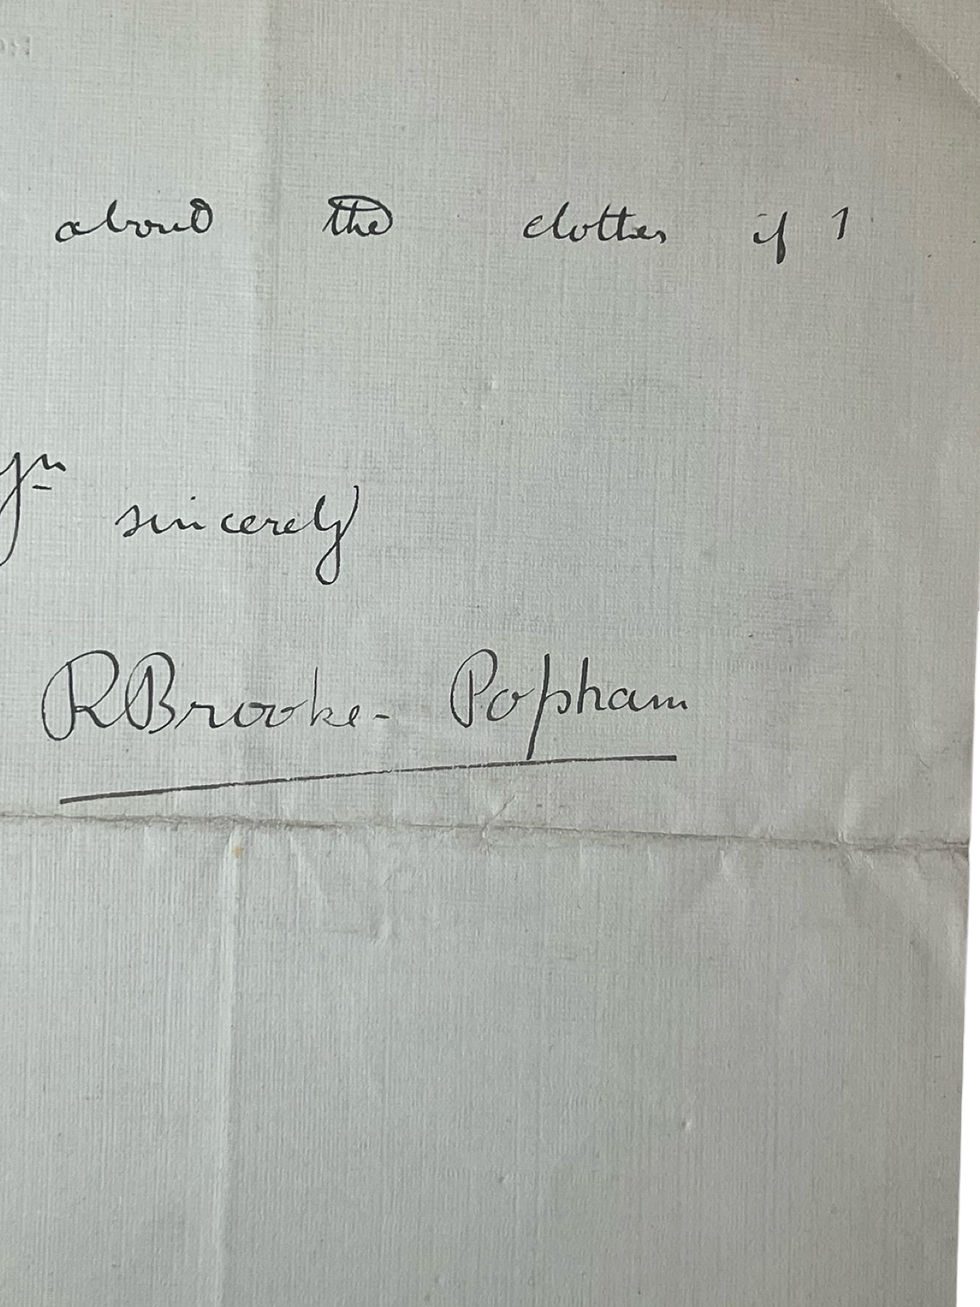 about the clothes if I
Yrs
sincerely
RBrooke-Popham